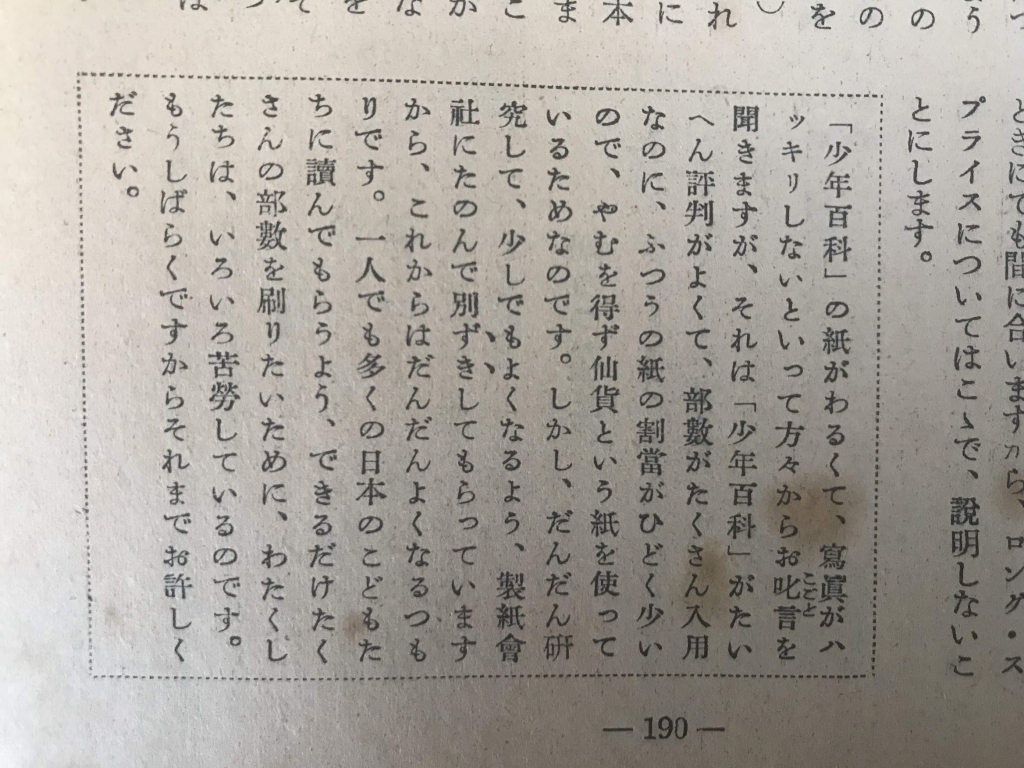 ときにでも間に合いますから、ロング・ス
プライスについてはこゝで、説明しないこ
とにします。
「少年百科」の紙がわるくて、寫眞がハ
ッキリしないといって方々からお叱言を
こごと
聞きますが、それは「少年百科」がたい
へん評判がよくて、部數がたくさん入用
なのに、ふつうの紙の割當がひどく少い
ので、やむを得ず仙貨という紙を使って
いるためなのです。しかし、だんだん研
究して、少しでもよくなるよう、製紙會
社にたのんで別ずきしてもらっています
から、これからはだんだんよくなるつも
りです。一人でも多くの日本のこどもた
ちに讀んでもらうよう、できるだけたく
さんの部數を刷りたいために、わたくし
たちは、いろいろ苦勞しているのです。
もうしばらくですからそれまでお許しく
ださい。
— 190 —